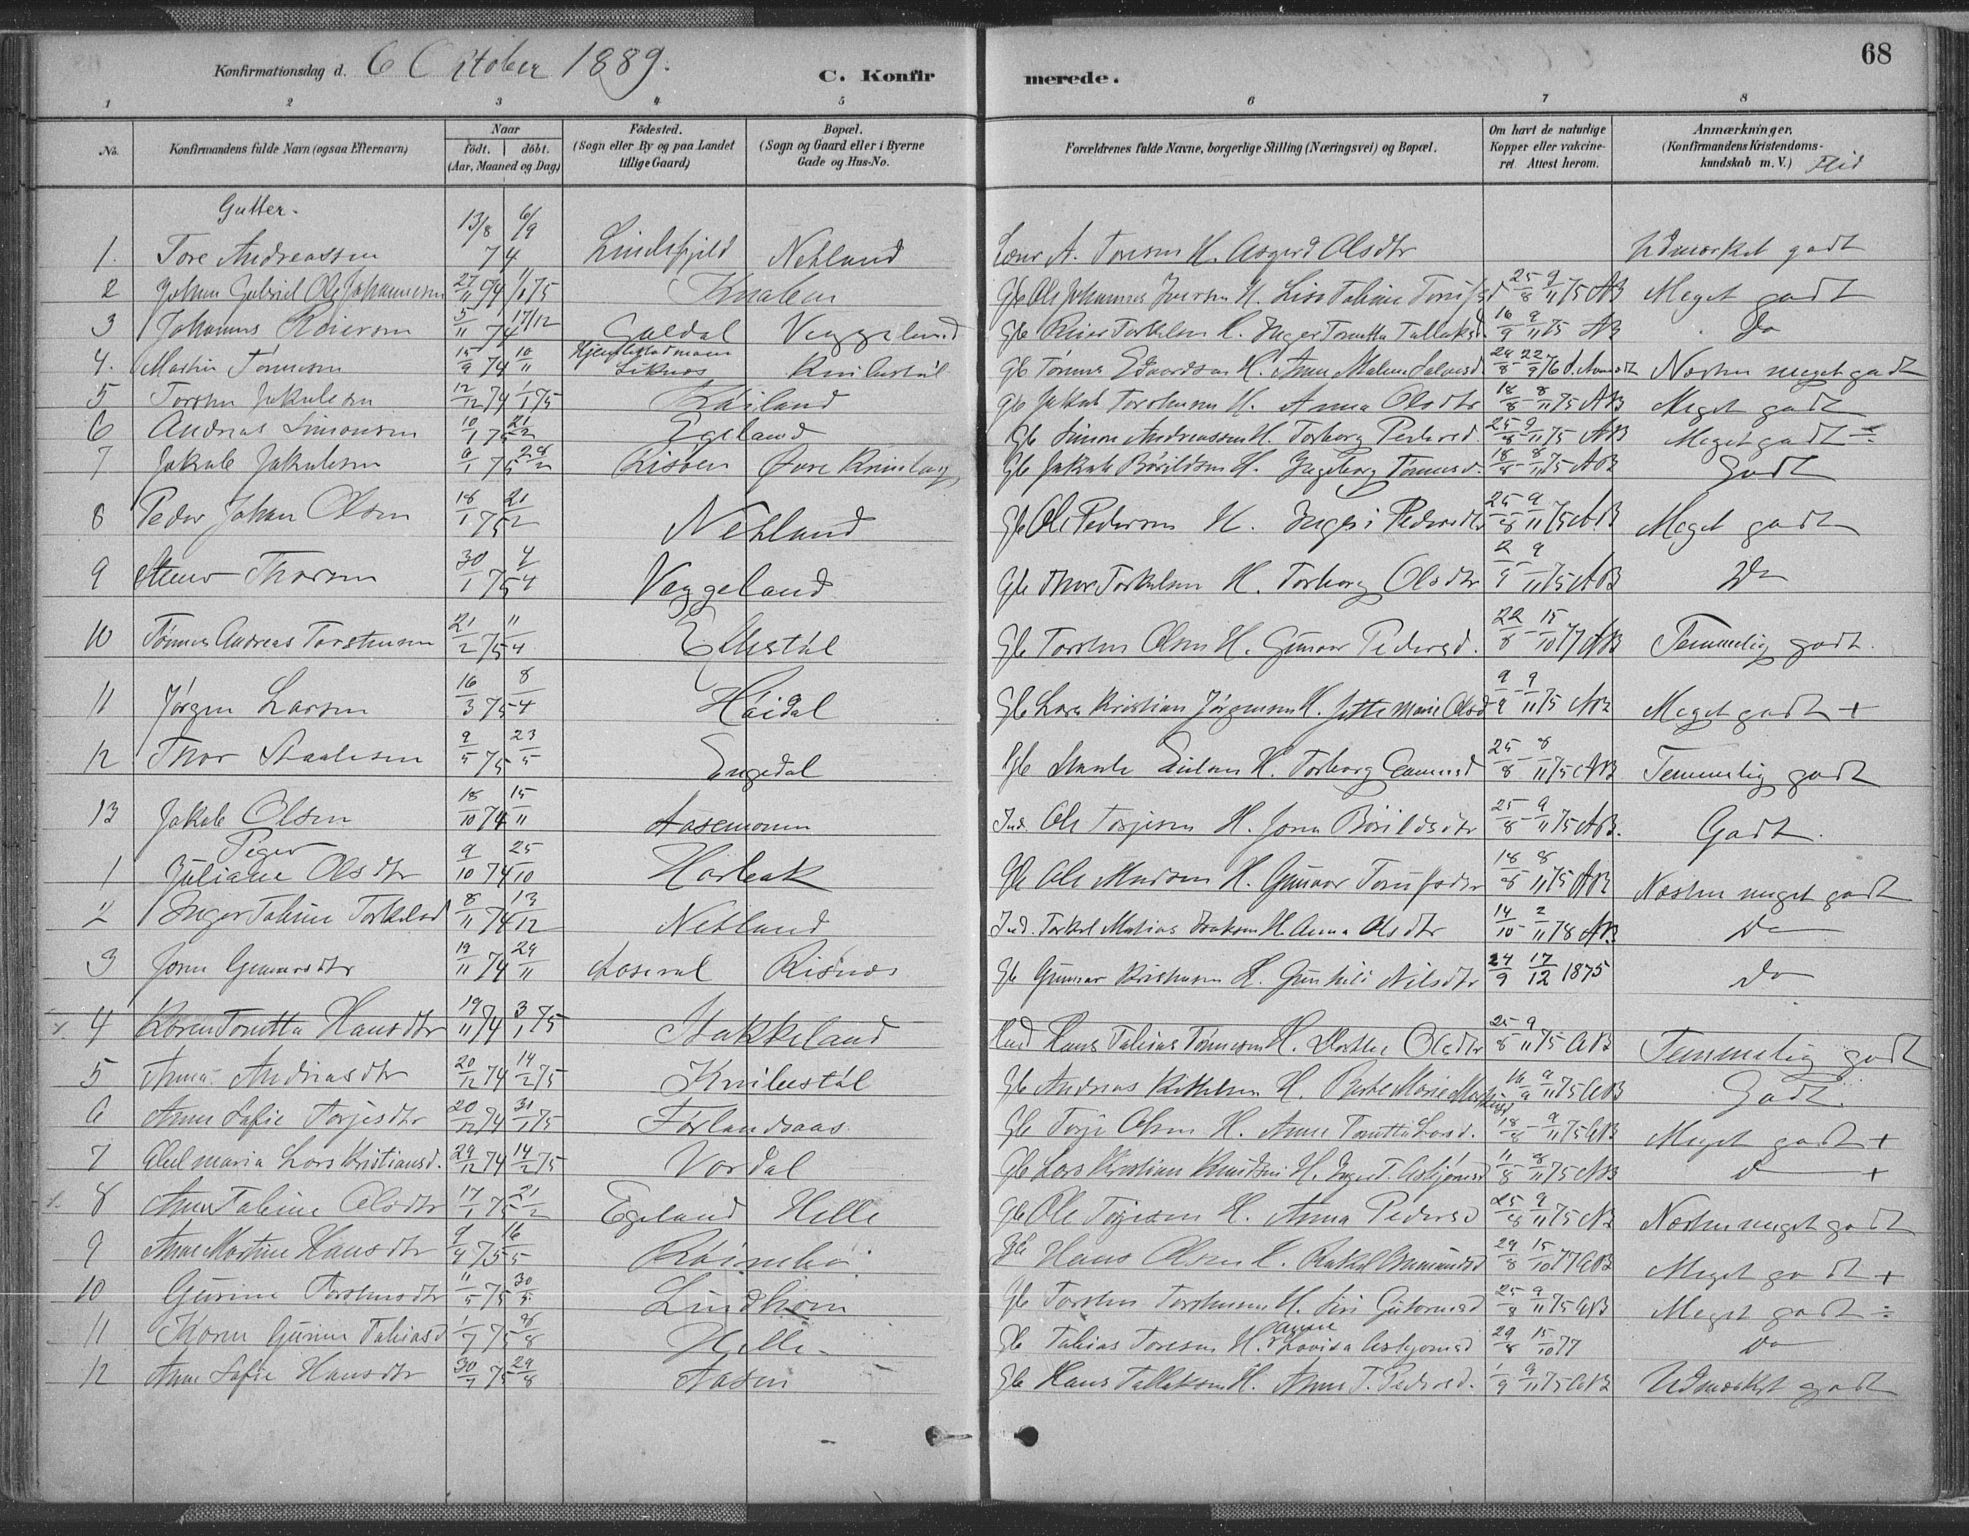 Konfirmationsdag d. 6 October 1889. C. Konfir merede. 68
1 2 3 4 5 6 7 8
No. Konfirmandens fulde Navn (ogsaa Efternavn) Naar födt. döbt. (Aar, Maaned og Dag) Födested. (Sogn eller By og paa Landet tillige Gaard) Bopæl. (Sogn og Gaard eller i Byerne Gade og Hus-No. Forældrenes fulde Navne, borgerlige Stilling (Næringsvei) og Bopæl. Om havt de naturlige Kopper eller vakcineret. Attest herom. Anmærkninger. (Konfirmandens Kristendomskundskab m. V.) Flid
Gutter.
1. Tore Andreassen 13/8 6/9 74 Lindefjeld Netland A. Toresen H. Asgerd Olsdtr Udmærket godt
2 Johan Gabriel Ole Johannesen 27/11 74 1/1 75 Knaben Gb Ole Johannes Iversen H. Lise Tabine 25/8 - 9/11 75 AB Meget godt
3 Johannes Reiersen 5/11 74 17/12 Galdal Veggeland Gb Reier Torkelsen H. Inger Tonette Tallaksd. 16/9 9/11 75 AB Do
4. Martin Tønnesen 15/9 74 10/11 Liknes Knibestøl Gb Tønnes Edvardsen H. Anne Malene 24/8 - 22/9 76 Næsten meget godt
5 Torsten Jakobsen 12/12 74 1/1 75 Røiland Gb Jakob Torstensen H. Anna Olsdtr 18/8 - 8/11 75 AB Meget godt
6 Andreas Simonsen 10/1 75 21/2 Egeland Gb Simon Andreassen H. Torborg Pedersd. 25/8 - 9/11 75 AB Meget godt ÷
7 Jakob Jakobsen 9/1 75 28/2 Risøen Øvre Gb Jakob Børildsen H. Ingeborg Tønnesd. 18/8 - 8/11 75 AB Godt
8 Peder Johan Olsen 18/1 75 21/2 Netland Gb Ole Pedersen H. Pedersdtr 25/8 - 9/11 75 AB Meget godt
9 Thorsen 30/1 75 4/4 Veggeland Gb Thor Torkelsen H. Torborg Olsdtr 2/9 - 9/11 75 AB Do
10 Tønnes Andreas Torstensen 21/2 75 11/4 Gb Torsten Olsen H. Gunvor Pedersd. 22/8 - 15/10 77 AB Temmelig godt.
11 Jørgen Larsen 16/3 75 8/4 Høidal Gb Lars Kristian Jørgensen H. Jette Marie Olsd 9/9 - 9/11 75 AB Meget godt +
12 Thor Staalesen 9/5 75 23/5 Engedal Gb Staale H. Torborg 25/8 - 8/11 75 AB Temmelig godt
13 Jakob Olsen 18/10 74 15/11 Aasemoen Ind. Ole Torjesen H. Jorn Børildsdtr 25/8 - 9/11 75 AB. Godt.
Piger
1 Juliane Olsdtr 9/10 74 25/10 Gb Ole H. Gunvor 18/8 8/11 75 AB Næsten meget godt
2 Inger Tabine Torkelsd 8/11 74 13/12 Netland Ind. Torkel Matias H. Anna Olsdtr 14/10 - 2/11 78 AB Do
3 Jorn Gunnarsdtr 19/11 74 29/11 Aaseral Risnes Gb Gunnar H. Gunhild Nilsdtr 24/9 17/12 1875 Do
4 Karen Tonetta Hansdtr 19/11 74 3/1 75 Stakkeland Hans Tobias Tønnesen H. Olsdtr 25/8 9/11 75 AB Temmelig godt
5 Anna Andreasdtr 20/12 74 14/2 75 Knibestøl Gb Andreas H. Marie 16/9 9/11 75 AB Godt.
6 Anne Sofie Torjesdtr 20/12 74 31/1 75 Førlandsaas Gb Torje Olsen H. Anne Tonette Larsd. 18/8 - 9/11 75 AB Meget godt +
7 Abelmaria Lars Kristiansd. 29/12 74 14/2 75 Vordal Gb Lars Kristian Knudsen H. Inger T. Asbjørnsd 11/8 8/11 75 AB Do +
8 Anna Tabine Olsdtr 17/1 75 21/2 Egeland Hille Gb Ole Torjesen H. Anna Pedersd 25/8 9/11 75 AB Næsten meget godt
9 Anne Martine Hansdtr 9/4 75 16/5 Gb Hans Olsen H. Rakel 29/8 15/10 77 AB Meget godt +
10 Gurine Torstensdtr 11/5 75 30/5 Lindhom Gb Torsten Torstensen H. Siri Gutormsd 25/8 9/11 75 AB Meget godt ÷
11 Karen Gurine Tobiasd 1/7 75 8/8 Hille Gb Tobias Toresen H. Anne Lovisa 29/8 15/10 77 Do
12 Anne Sofie Hansdtr 30/7 75 29/8 Aasen Gb Hans Tallaksen H. Anne T. Pedersd. 1/9 9/11 75 AB Udmærket godt